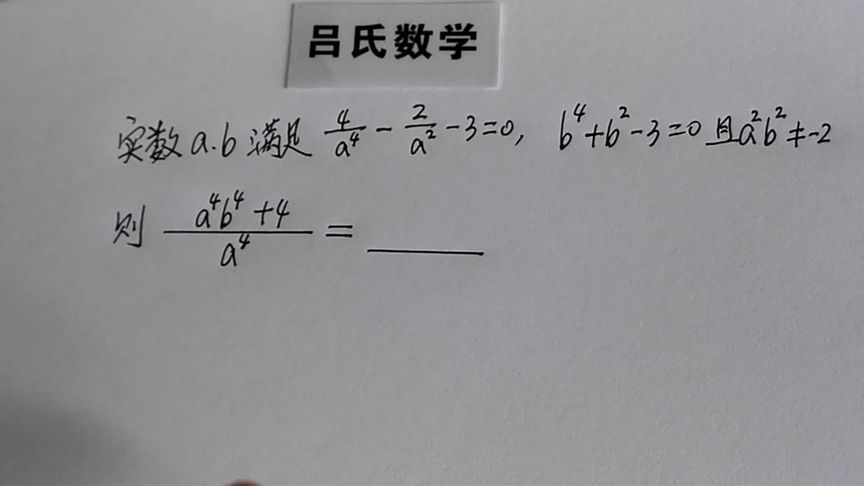 吕氏数学
实数a.b满足 4/a⁴ - 2/a² - 3 = 0, b⁴+b²-3=0 且a²b²≠-2
则 (a⁴b⁴+4)/a⁴ = ____